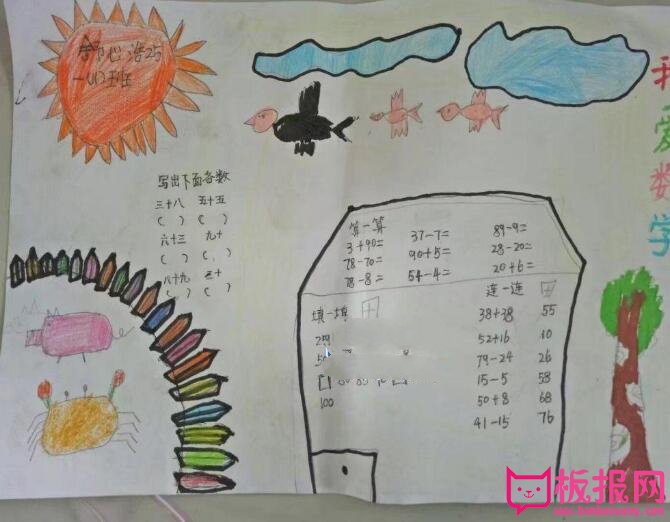 心浩25
一(1)班
我爱数学
写出下面各数
三十八 五十五
( ) ( )
六十三 九十
( ) ( )
八十九 三十
( ) ( )
算一算
3+90= 37-7= 89-9=
78-70= 90+5= 28-20=
78-8= 54-4= 20+6=
填一填
连一连
38+38 55
52+16 10
79-24 26
15-5 58
50+8 68
41-15 76
100
板报网